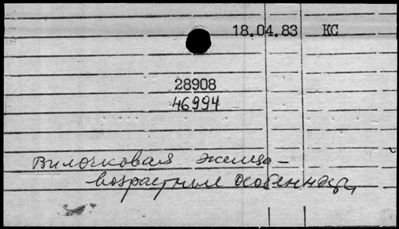 18.04.83 КС
28908
46994
Вилочковая железа –
возрастные особенности